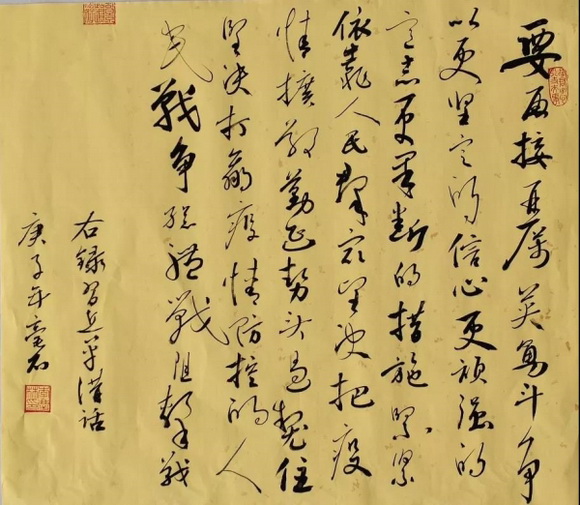 要再接再厉英勇斗争
以更坚定的信心更顽强的
意志更果断的措施紧紧
依靠人民群众坚决把疫
情扩散蔓延势头遏制住
坚决打赢疫情防控的人
民战争总体战阻击战
右录习近平讲话
庚子年